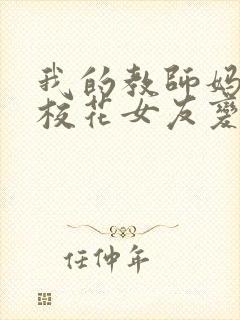 我的教師媽
校花女友愛
任仲年